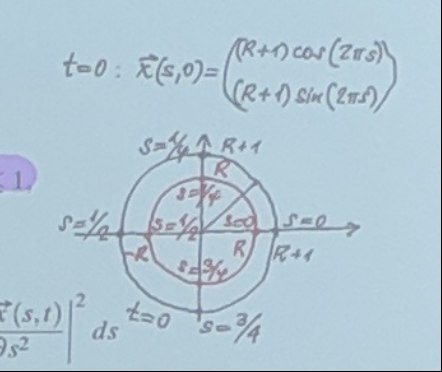 t=0 : x⃗(s,0)= ((R+1) cos(2πs)
(R+1) sin(2πs))
s=1/4 R+1
R
1,
s=1/4
s=1/2 s=1/2 s=0 s=0
-R R R+1
s=3/4
x⃗(s,t) |² ds t=0 s=3/4
∂s²